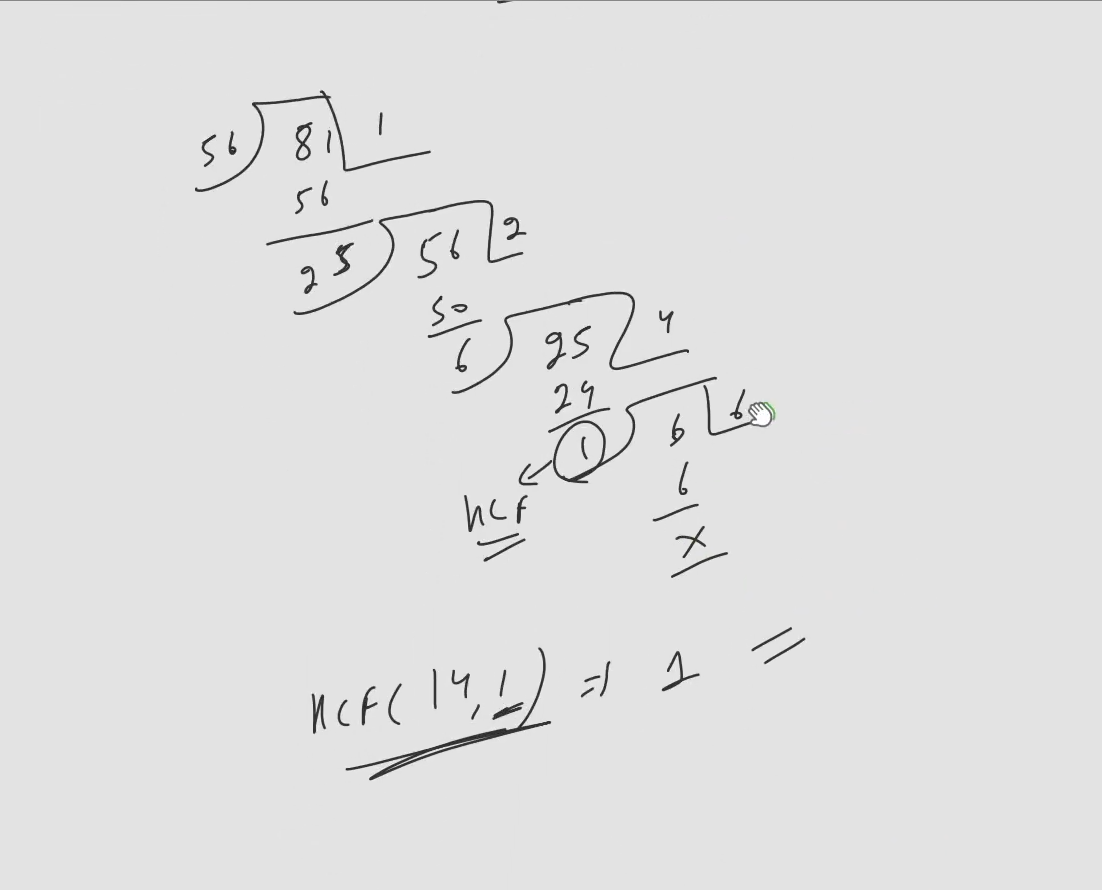 56 ) 81 | 1
56
25 ) 56 | 2
50
6 ) 25 | 4
24
1 ) 6 | 6
6
HCF
x
HCF( 14, 1 ) => 1 =